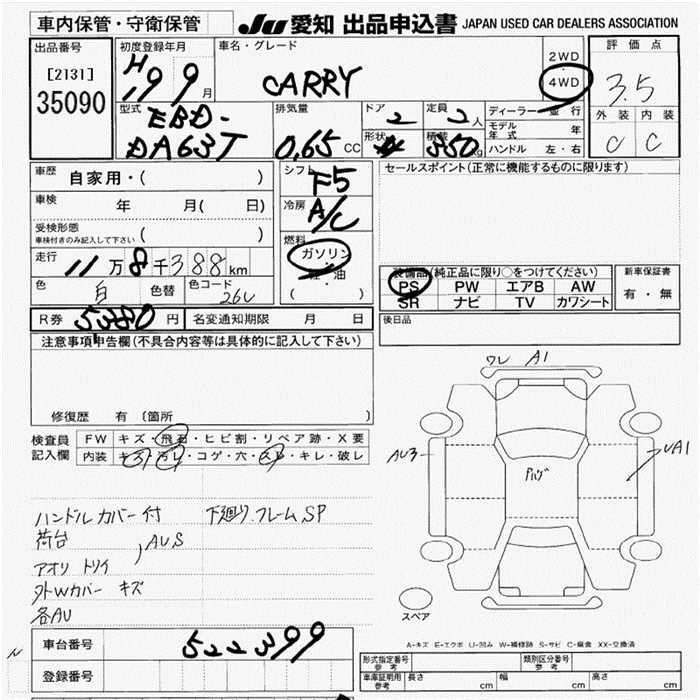 車内保管・守衛保管 JU 愛知 出品申込書 JAPAN USED CAR DEALERS ASSOCIATION
出品番号 [2131] 35090
初度登録年月 H19 9 月
車名・グレード CARRY
2WD
4WD
評価点 3.5
外装 内装
C C
型式 EBD-DA63T
排気量 0.65 CC
ドア 2
定員 2 人
形状
積載 350 kg
ディーラー 並行
モデル年式 年
ハンドル 左・右
車歴 自家用・( )
車検 年 月( 日)
受検形態
車検付きのみ記入して下さい ( )
走行 11万8千388km
色 白 色替 色コード 26U
R券 5380 円 名変通知期限 月 日
シフト F5
冷房 A/C
燃料
ガソリン
軽油
( )
セールスポイント(正常に機能するものに限ります)
装備品(純正品に限り○をつけてください)
PS PW エアB AW
SR ナビ TV カワシート
新車保証書
有・無
後日品
注意事項申告欄(不具合内容等は具体的に記入して下さい)
修復歴 有 〔箇所 〕
検査員記入欄
FW キズ・飛石・ヒビ割・リペア跡・X要
内装 キズ・汚レ・コゲ・穴・スレ・キレ・破レ
ハンドルカバー付 下廻り.フレームSP
荷台
アオリ トリイ ) AUS
外Wカバー キズ
各AU
ワレ A1
AU3
UA1
スペア
A-キズ E-エクボ U-凹み W-補修跡 S-サビ C-腐食 XX-交換済
車台番号 522399
登録番号
形式指定番号 参考 類別区分番号 参考
車庫証明用 参考 長さ cm 幅 cm 高さ cm